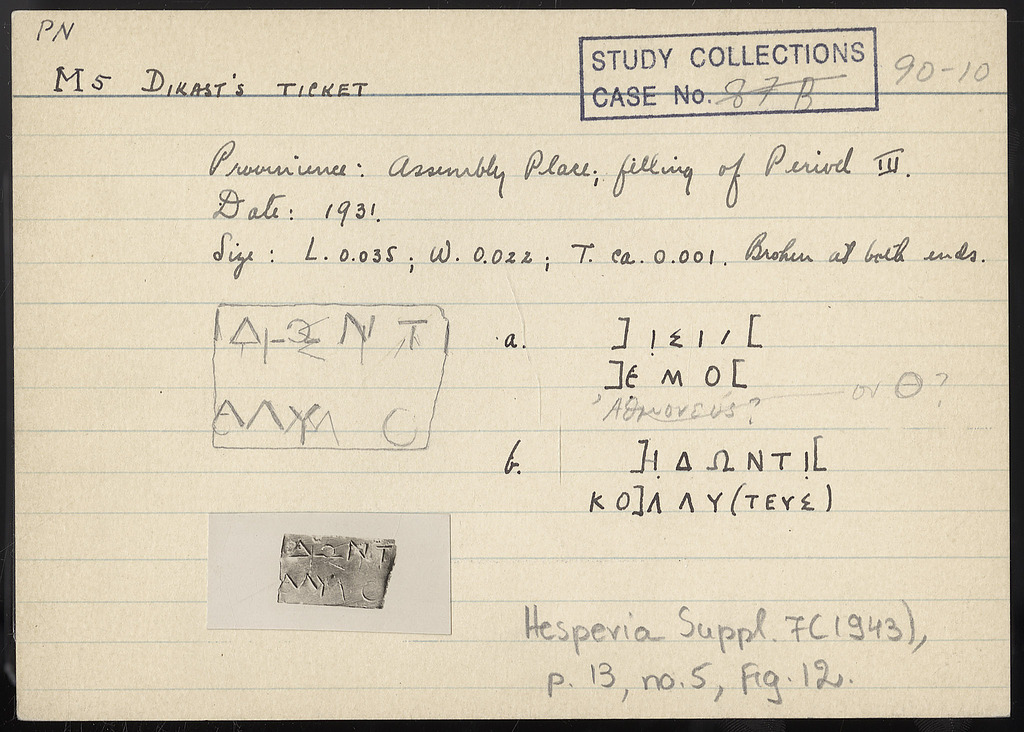 PN
M5 DIKAST'S TICKET
STUDY COLLECTIONS
CASE No. 87 B
90-10
Provenience: Assembly Place; filling of Period III.
Date: 1931.
Size: L. 0.035; W. 0.022; T. ca. 0.001. Broken at both ends.
ΔΩΝΤ
ΛΛΥΜ Ο
a. ] Ι Σ Ι Ι [
]Ε Μ Ο[
Ἀθμονεύς? or Θ?
b. ]Ι Δ Ω Ν Τ Ι[
Κ Ο]Λ Λ Υ(ΤΕΥΣ)
ΔΩΝΤ
Hesperia Suppl. 7 (1943),
p. 13, no. 5, Fig. 12.